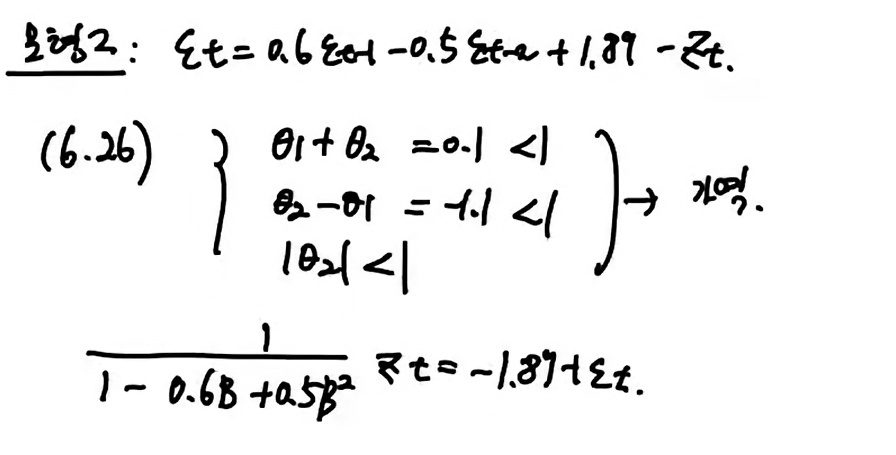 모형2: εt = 0.6 εt-1 - 0.5 εt-2 + 1.89 - Zt.
(6.26) { θ1 + θ2 = 0.1 < 1
θ2 - θ1 = -1.1 < 1 } → 가역.
|θ2| < 1
1 / (1 - 0.6B + 0.5B²) Zt = -1.89 + εt.